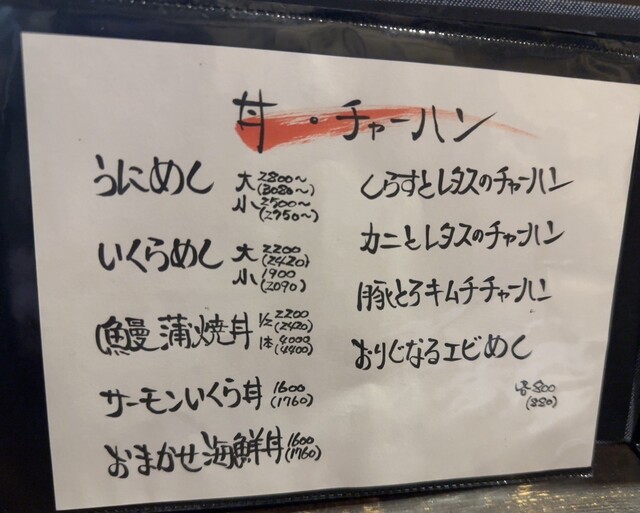 丼・チャーハン
うにめし 大 2800~
(3080~)
小 2500~
(2750~)
いくらめし 大 2200
(2420)
小 1900
(2090)
鰻蒲焼丼 1/2 2200
(2420)
1本 4000
(4400)
サーモンいくら丼 1600
(1760)
おまかせ海鮮丼 1600
(1760)
しらすとレタスのチャーハン
カニとレタスのチャーハン
豚とろキムチチャーハン
おりじなるエビめし
各800
(880)